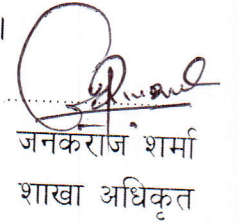 ।
जनकराज शर्मा
शाखा अधिकृत